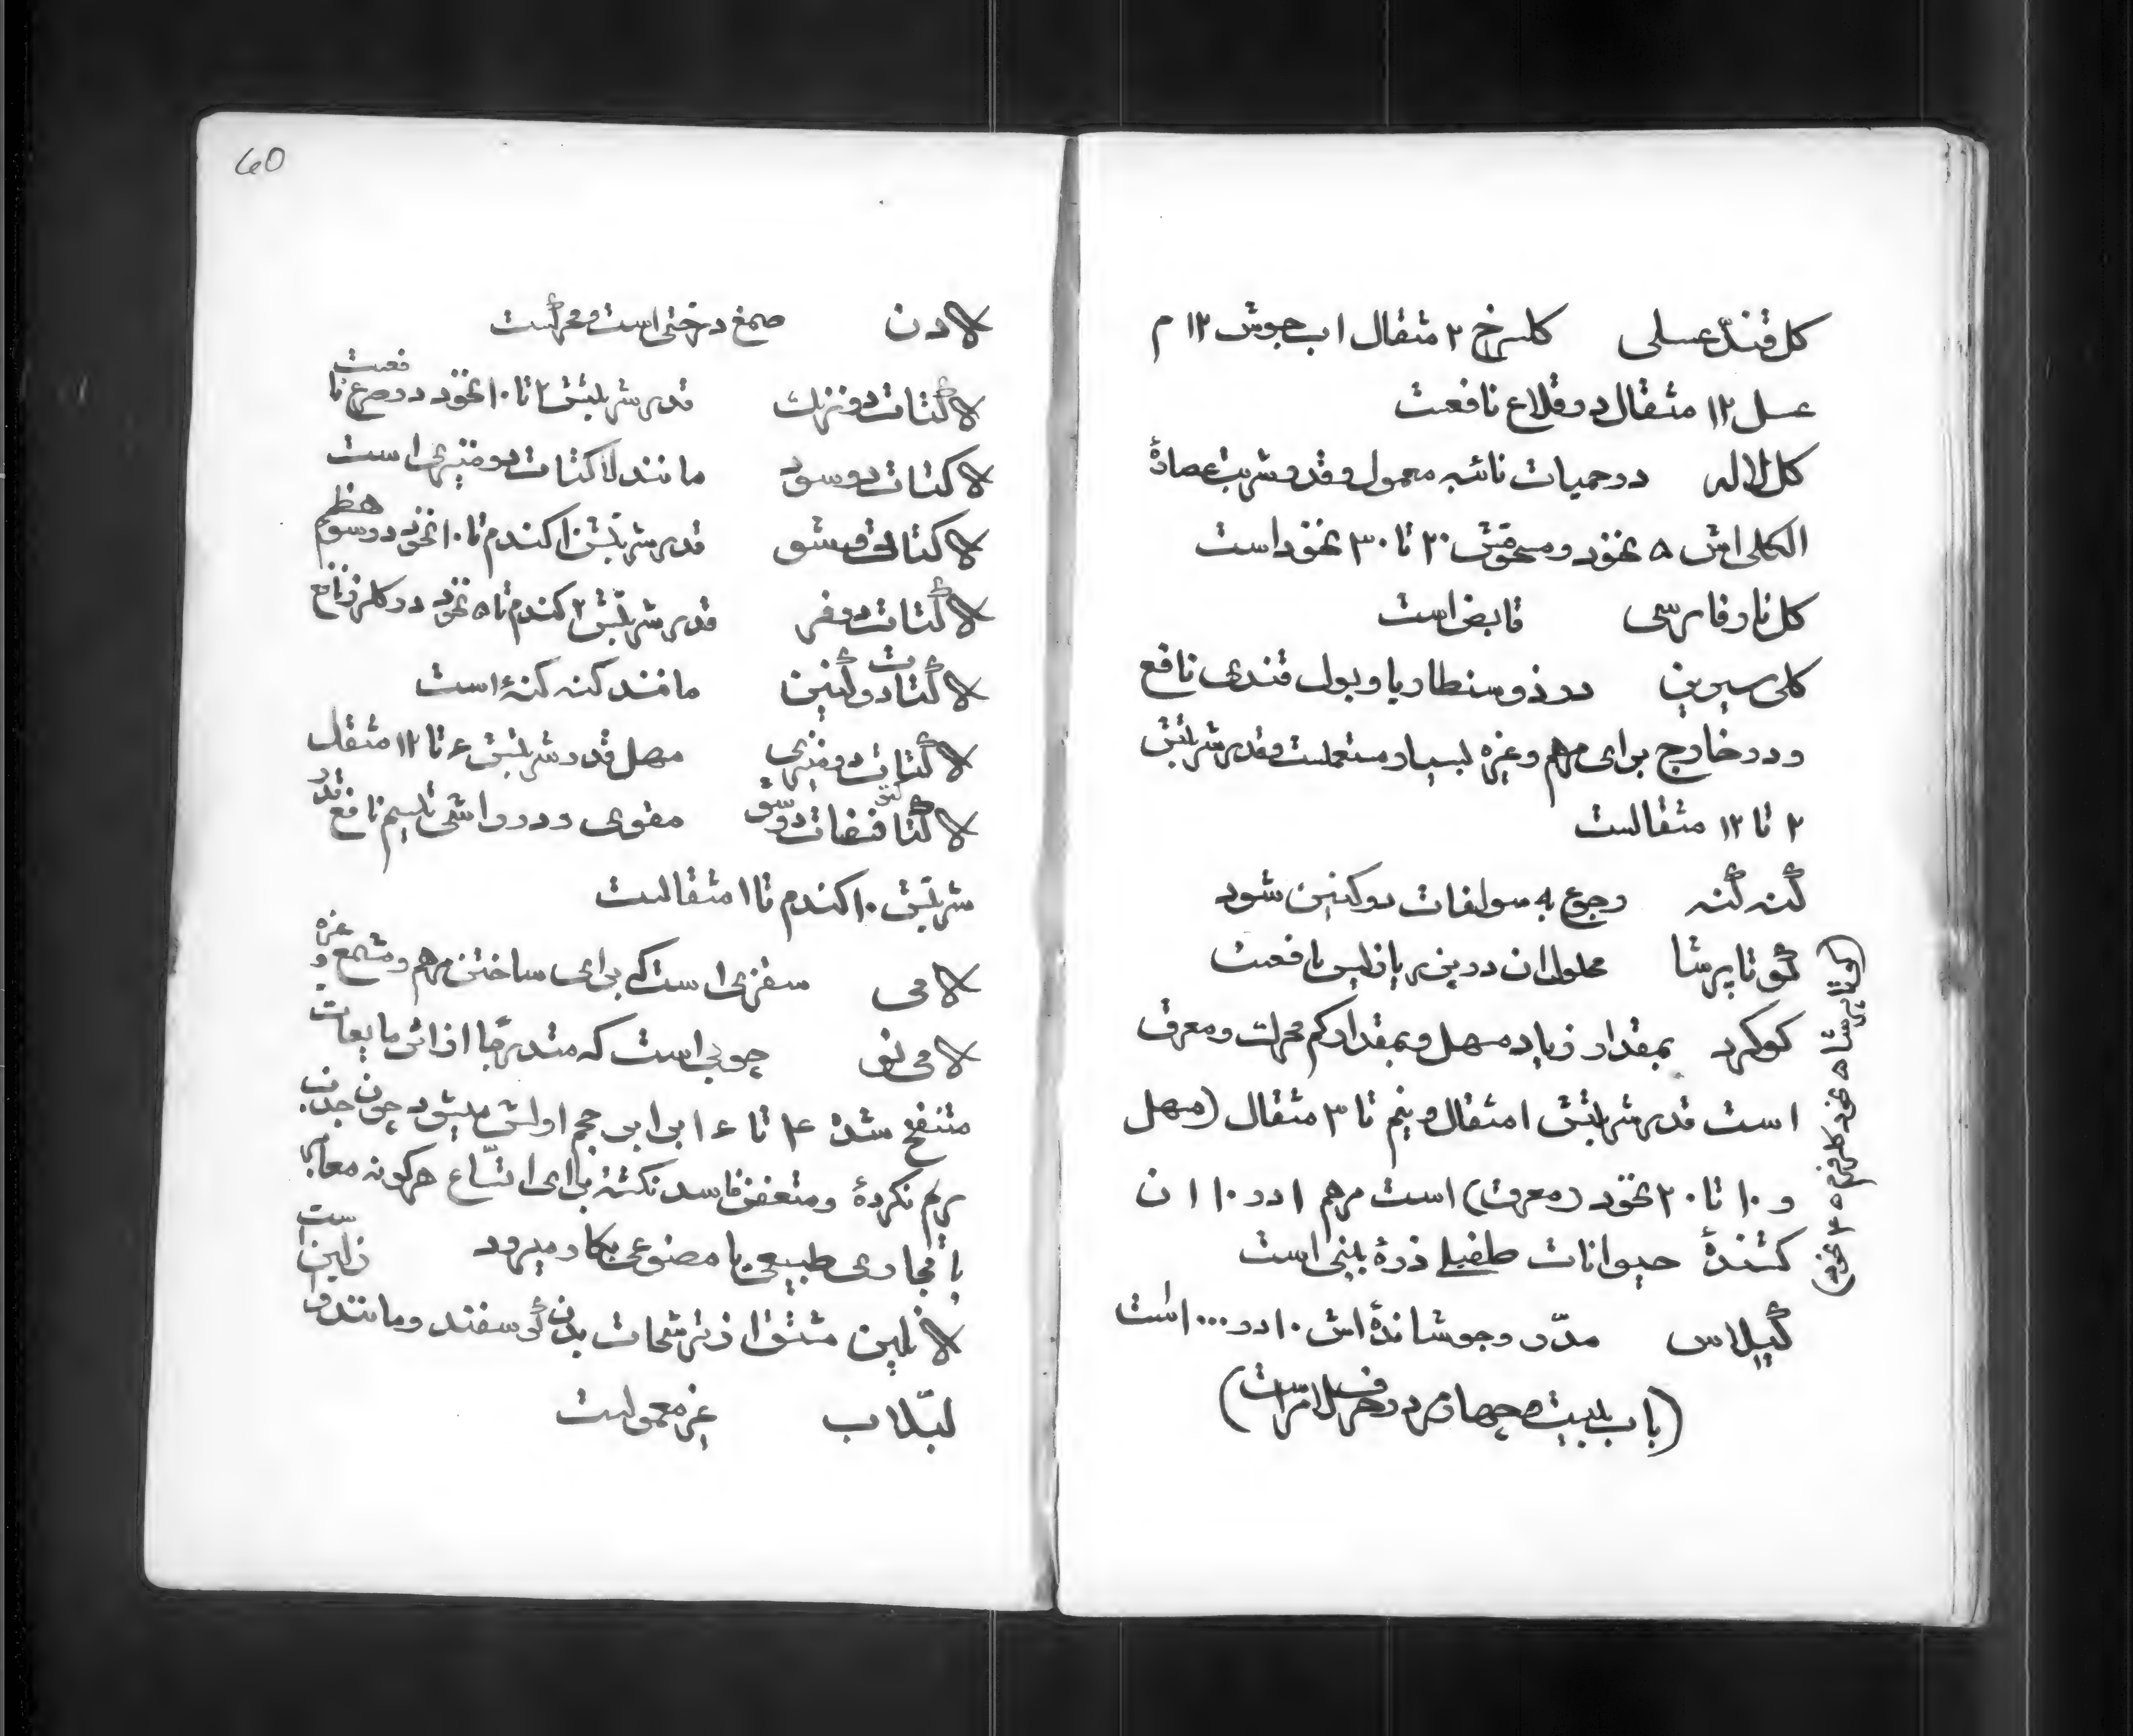 کل قند عسلی کلسرخ ۲ مثقال اب جوش ۱۲ م
عسل ۱۲ مثقال در قلاع نافعت
کل لاله در حمیات نائبه معمول و قدر شربت عصارهٔ
الکلی اش ۵ نخود و مسحوقش ۲۰ تا ۳۰ نخود است
کل نار فارسی قابض است
کلی سیرین در ذوسنطاریا و بول قندی نافع
و در خارج برای مرهم و غیره بسیار مستعملست و قدر شربتش
۲ تا ۱۲ مثقالست
گنه گنه رجوع به سولفات دو کنین شود
گوتا پرشا محلول ان در
کوکرد بمقدار زیاد مسهل و بمقدار کم محرک و معرق
است قدر شربتش ۱ مثقال و نیم تا ۳ مثقال (مسهل
و ۱۰ تا ۲۰ نخود (معرق) است مرهم ۱ در ۱۰ ان
کشندهٔ حیوانات طفیلی ذره بینی است
گیلاس مدّر و جوشاندهٔ اش ۱۰ در ۰۰۰ است
(باب بیست و چهارم در حرف لام است)
لادن صمغ درختی است و محرکست
لاکتات دو زنک قدر شربتش ۲ تا ۱۰ نخود در صرع نا
فعت
لاکتات دو سود مانند لاکتات دو منیزی است
قدر شربتش ۱ کندم تا ۱۰ نخود در سوء
هظم
لاکتات دو فر قدر شربتش ۲ کندم تا ۵ نخود در کلرز نافع
لاکتات دو کنین مانند کنه کنهٔ است
لاکتات دو منیزی مسهل قدر شربتش ۶ تا ۱۲ مثقال
مقوی و در راشی تیسم نافع قدر
شربتش ۱۰ کندم تا ۱ مثقالست
لامی سقزی است که برای ساختن مرهم و مشمع و
غیره
لامی نر چوبی است که متدرجا از اثر مایعات
متنفخ شده ۴ تا ۶ برابر حجم اولش میشود چون جذب
یرم نکردهٔ و متعفن فاسد نکشته برای اتساع هرکونه معابر
یا مجاری طبیعی یا مصنوعی بکار میرود
لانلین مشتق از ترشحات بدن گوسفند و مانند
لبلاب غیر معمولست